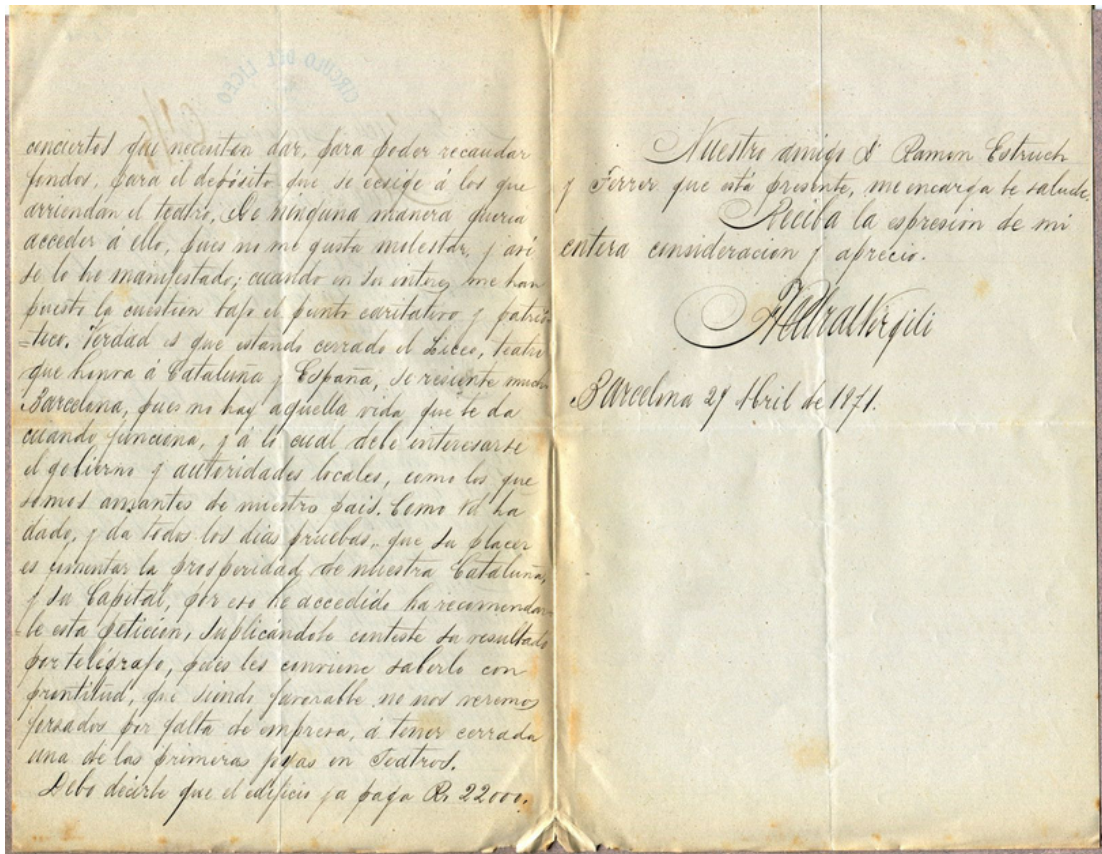 conciertos que necesitan dar, para poder recaudar
fondos, para el depósito que se ecsige á los que
arriendan el teatro. De ninguna manera queria
acceder á ello, pues no me gusta molestar, y asi
se lo he manifestado; cuando en su interes me han
puesto la cuestion bajo el punto caritativo y patrió-
=tico. Verdad es que estando cerrado el Liceo, teatro
que honra á Cataluña y España, se resiente mucho
Barcelona, pues no hay aquella vida que le da
cuando funciona, y á lo cual debe interesarse
el gobierno y autoridades locales, como los que
somos amantes de nuestro pais. Como Vd ha
dado, y da todos los dias pruebas, que su placer
es fomentar la prosperidad de nuestra Cataluña,
y su Capital, por eso he accedido ha recomendar-
le esta peticion, suplicándole conteste su resultado
por telégrafo, pues les conviene saberlo con
prontitud, que siendo favorable no nos veremos
forzados por falta de empresa, á tener cerrada
una de las primeras joyas en Teatros.
Debo decirle que el edificio ya paga R. 22000.
Nuestro amigo Dn Ramon Estruch
y Ferrer que está presente, me encarga le salude.
Reciba la espresion de mi
entera consideracion y aprecio.
Barcelona 29 Abril de 1871.
CIRCULO DEL LICEO